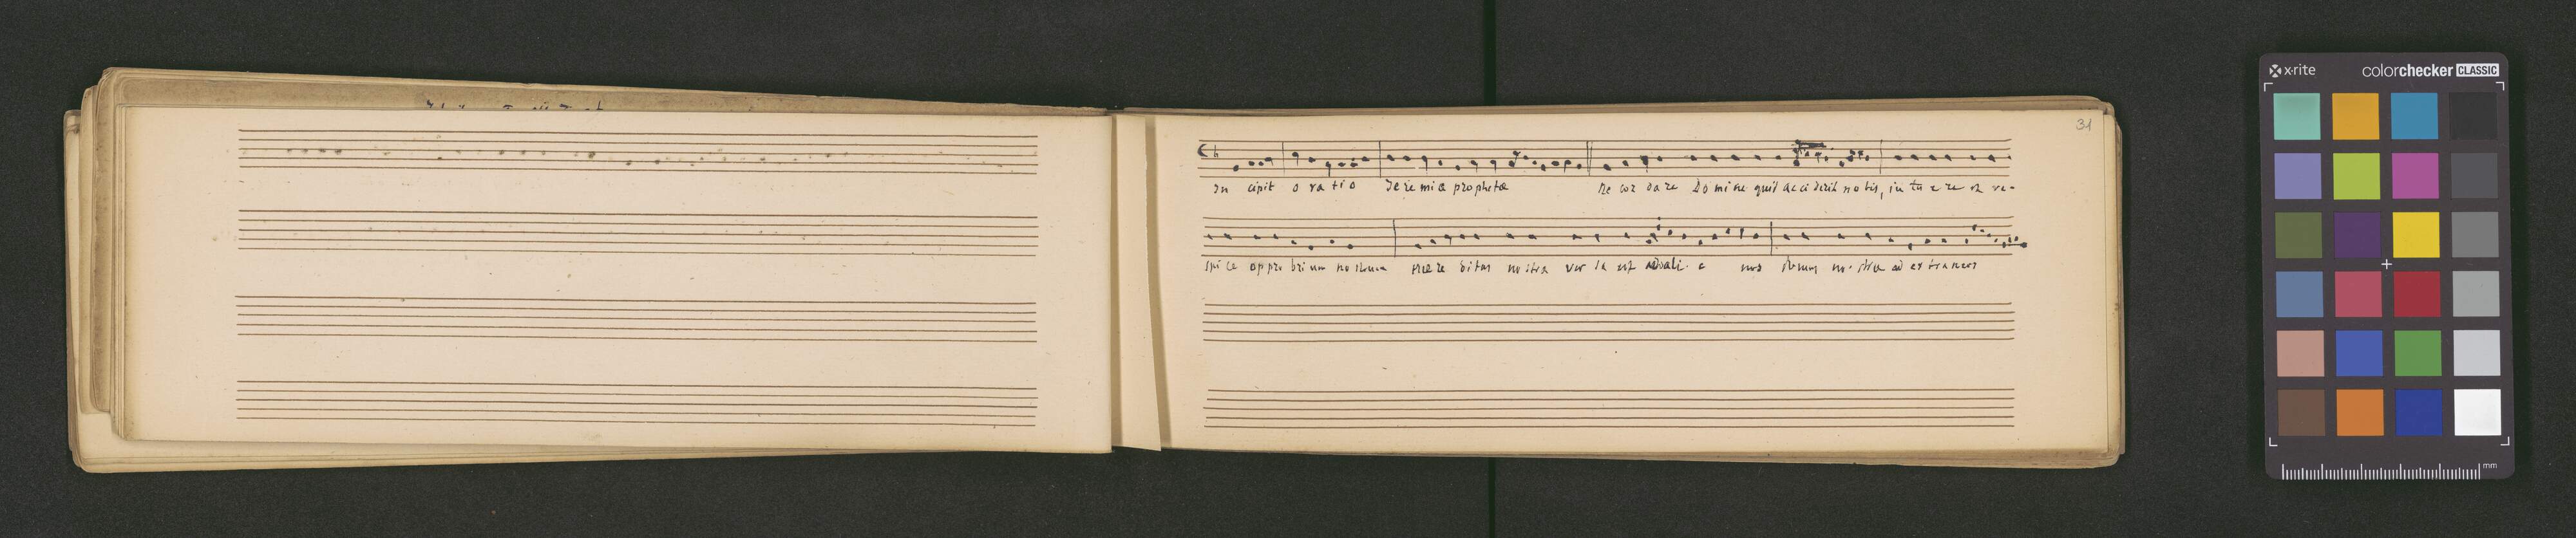 31
In cipit o ra ti o Jere mi æ prophetæ Re cor da re Do mi ne quid ac ci derit no bis, in tu e re et re-
spi ce oppro bri um no strum hære ditas no stra ver sa est ad ali e nos domus no stra ad extraneos
x·rite colorchecker CLASSIC
mm